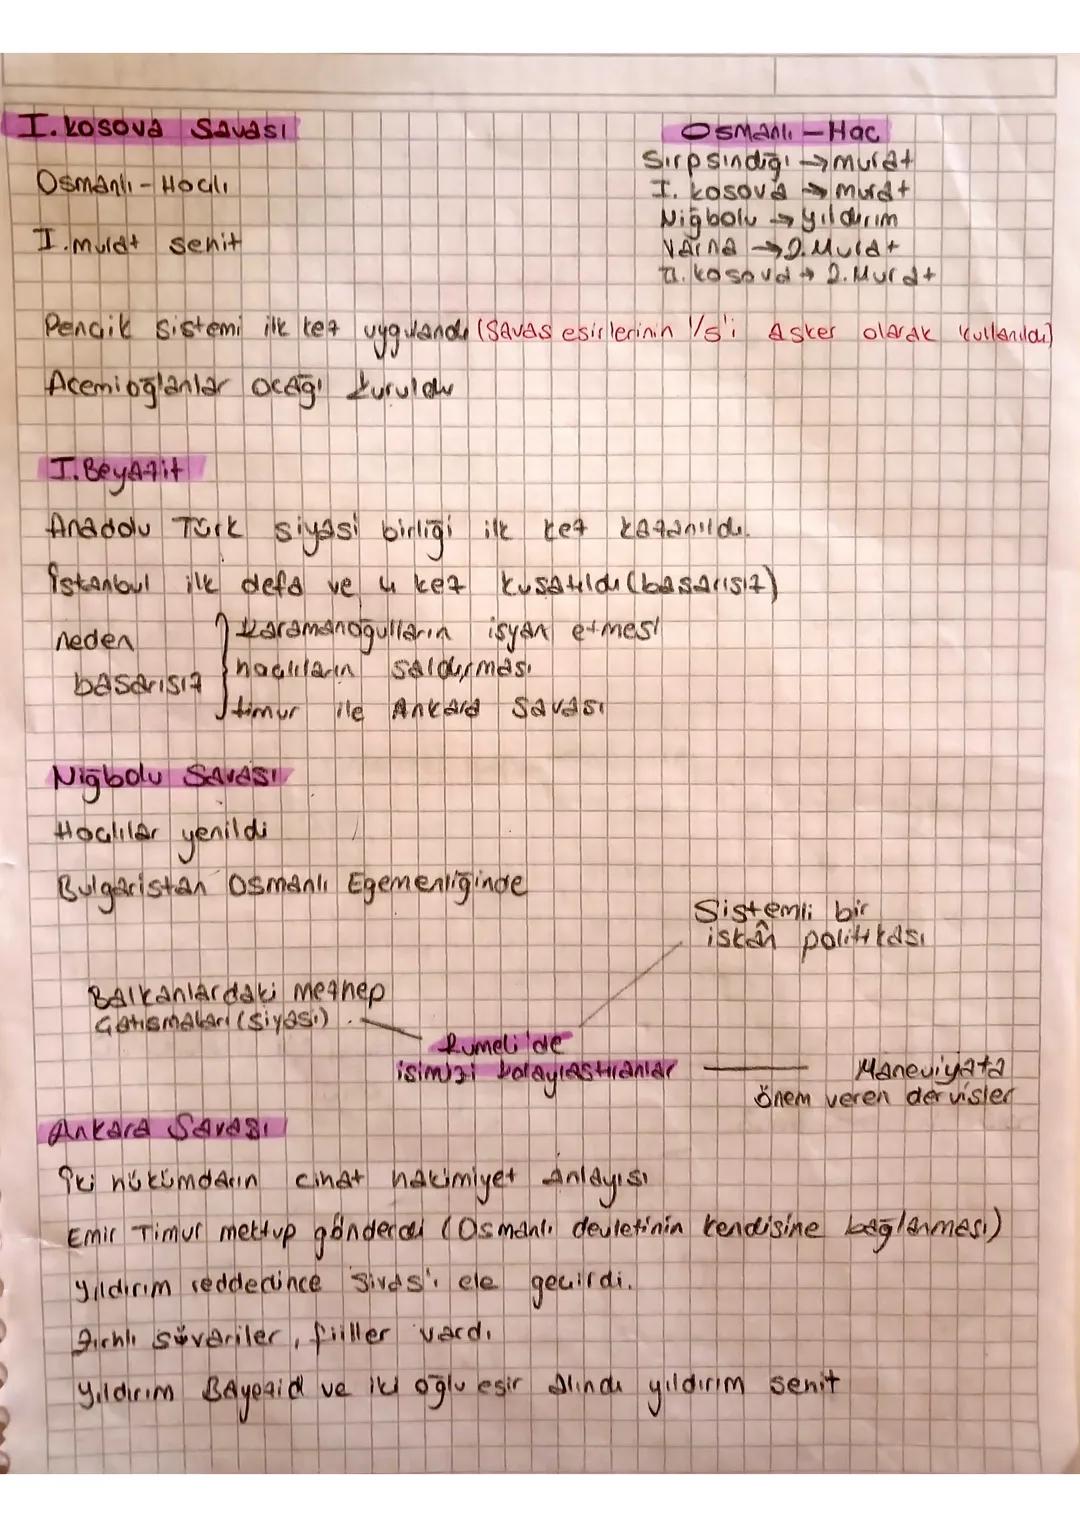 I. Kosova Savası
Osmanlı - Haclı
I. murat sehit
Osmanlı - Hac
Sırpsındığı → murat
I. kosova → murat
Niğbolu → yıldırım
Varna → 2. Murat
II. kosova → 2. Murat
Pencik Sistemi ilk kez uygulandı (Savas esirlerinin 1/5'i Asker olarak kullanıldı)
Acemioğlanlar ocağı kuruldu
I. Beyazit
Anadolu Türk siyasi birliği ilk kez kazanıldı.
İstanbul ilk defa ve 4 kez kusatıldı (basarısız)
neden basarısız
Karamanoğulların isyan etmesi
haclıların saldırması
timur ile Ankara Savası
Niğbolu Savası
Haclılar yenildi
Bulgaristan Osmanlı Egemenliğinde
Sistemli bir
iskân politikası
Balkanlardaki mezhep
Catısmaları (siyasi)
Rumeli'de
isimizi kolaylastıranlar
Maneviyata
önem veren dervisler
Ankara Savası
İki hükümdarın cihat hakimiyet anlayısı
Emir Timur mektup gönderdi (Osmanlı devletinin kendisine bağlanması)
Yıldırım reddedince Sivas'ı ele gecirdi.
Zırhlı süvariler, fiiller vardı
Yıldırım Bayezid ve iki oğlu esir alındı yıldırım sehit